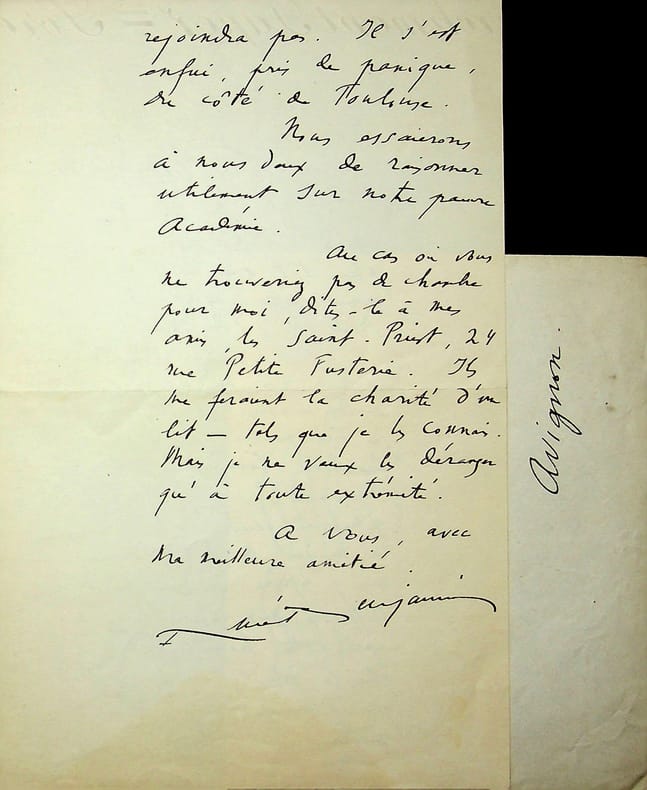 rejoindra pas. Il s'est
enfui, pris de panique,
du côté de Toulouse.
Nous essaierons
à nous deux de raisonner
utilement sur notre pauvre
Académie.
Au cas où vous
ne trouveriez pas de chambre
pour moi, dites-le à mes
amis, les Saint-Priest, 24
rue Petite Fusterie. Ils
me feraient la charité d'un
lit — tels que je les connais.
Mais je ne veux les déranger
qu'à toute extrémité.
A vous, avec
ma meilleure amitié.
René Benjamin
Avignon.